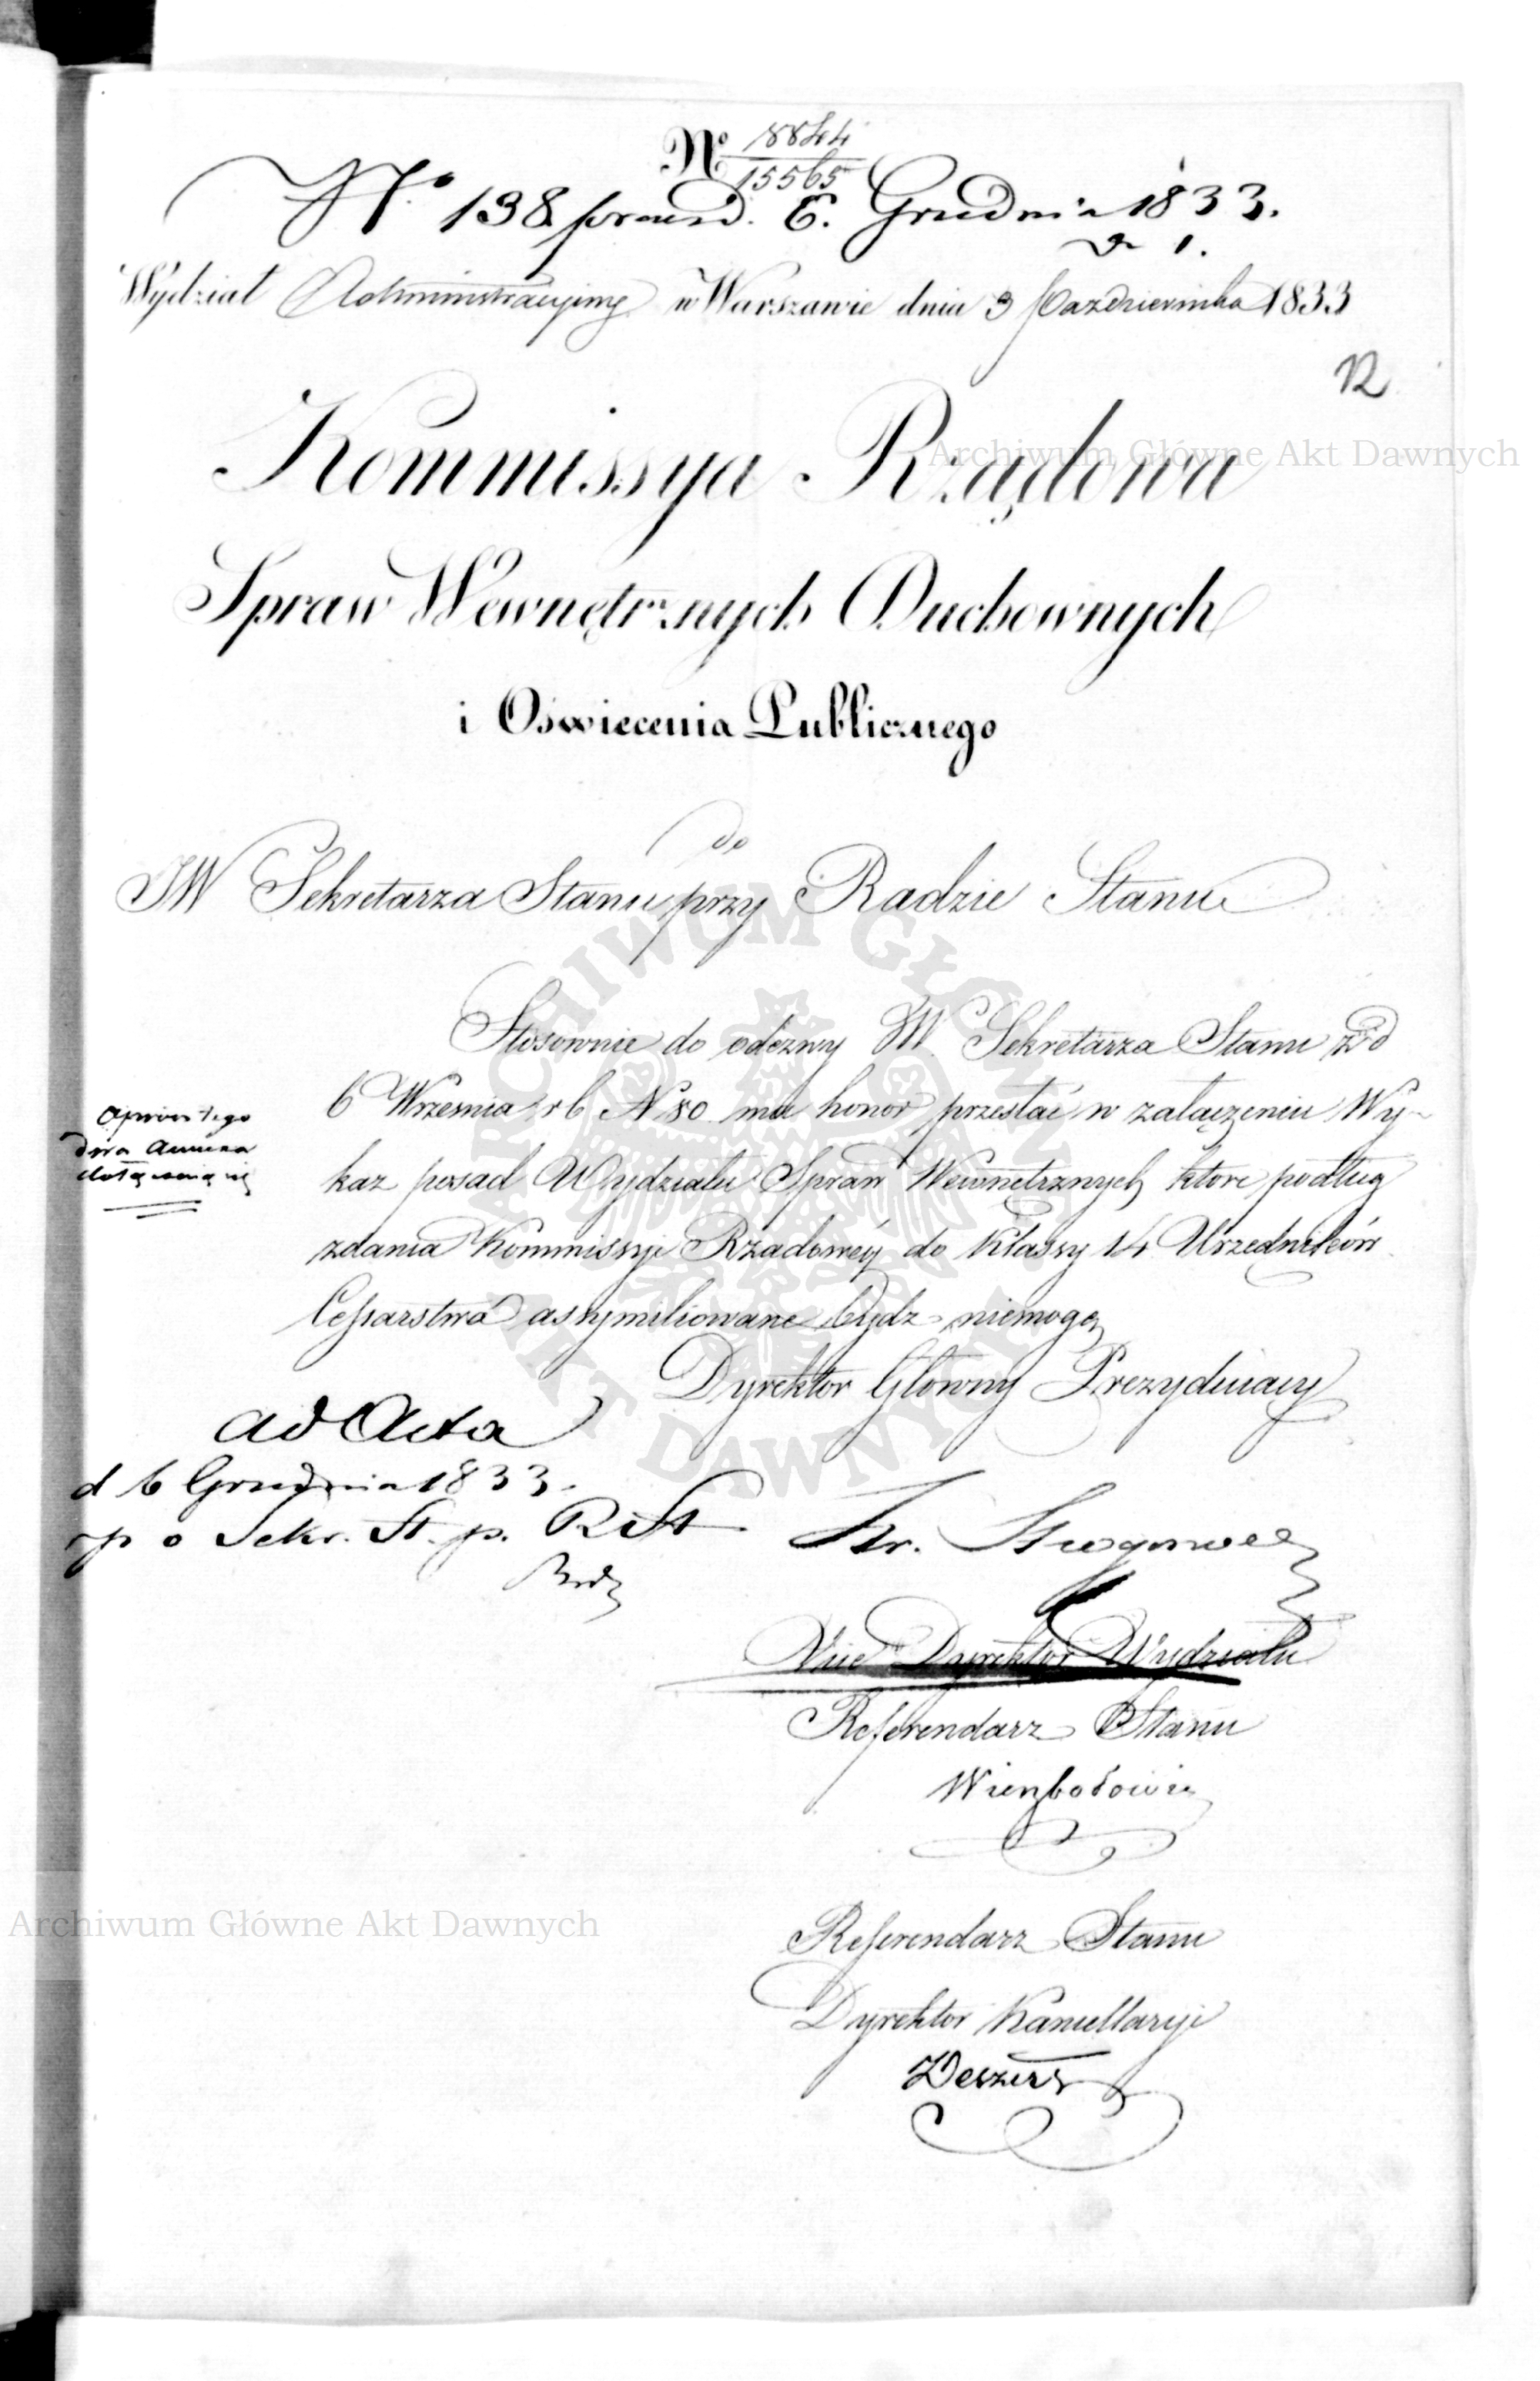 No 18844/15565
No 138 prez. d. 6. Grudnia 1833.
1.
Wydział Administracyjny w Warszawie dnia 3 Października 1833
12
Kommissya Rządowa
Spraw Wewnętrznych Duchownych
i Oświecenia Publicznego
do
JW Sekretarza Stanu przy Radzie Stanu
Stosownie do odezwy JW. Sekretarza Stanu z d
6 Września r b N 80 ma honor przesłać w załączeniu Wy-
kaz posad Wydziału Spraw Wewnętrznych które podług
zdania Kommissyi Rządowéy do klassy 14 Urzędników
Cessarstwa assymiliowane bydź niemogą
oprócz tego
dwa annexa
dołączają się
Dyrektor Głowny Prezyduiący
ad Acta
d 6 Grudnia 1833.
p o Sekr. St. p. R St
Str.
Vice Dyrektor Wydziału
Referendarz Stanu
Referendarz Stanu
Dyrektor Kancellaryi
Archiwum Główne Akt Dawnych
Archiwum Główne Akt Dawnych
ARCHIWUM GŁÓWNE AKT DAWNYCH